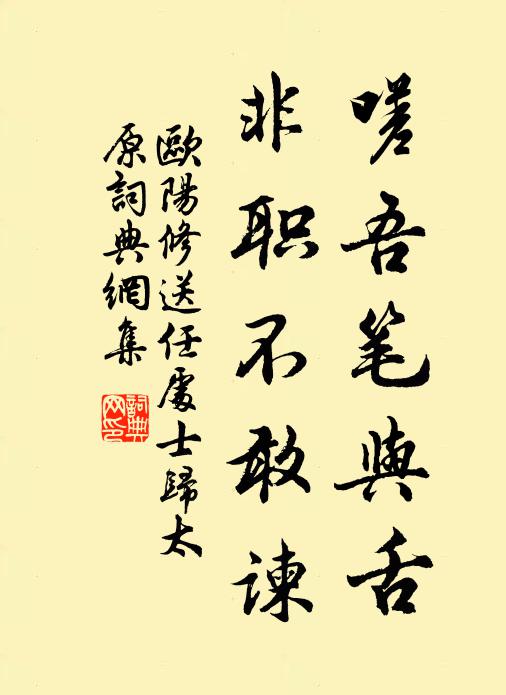 嗟吾笔與舌
非职不敢諫
歐陽修送任處士歸太
原詞典網集
詞典
网印